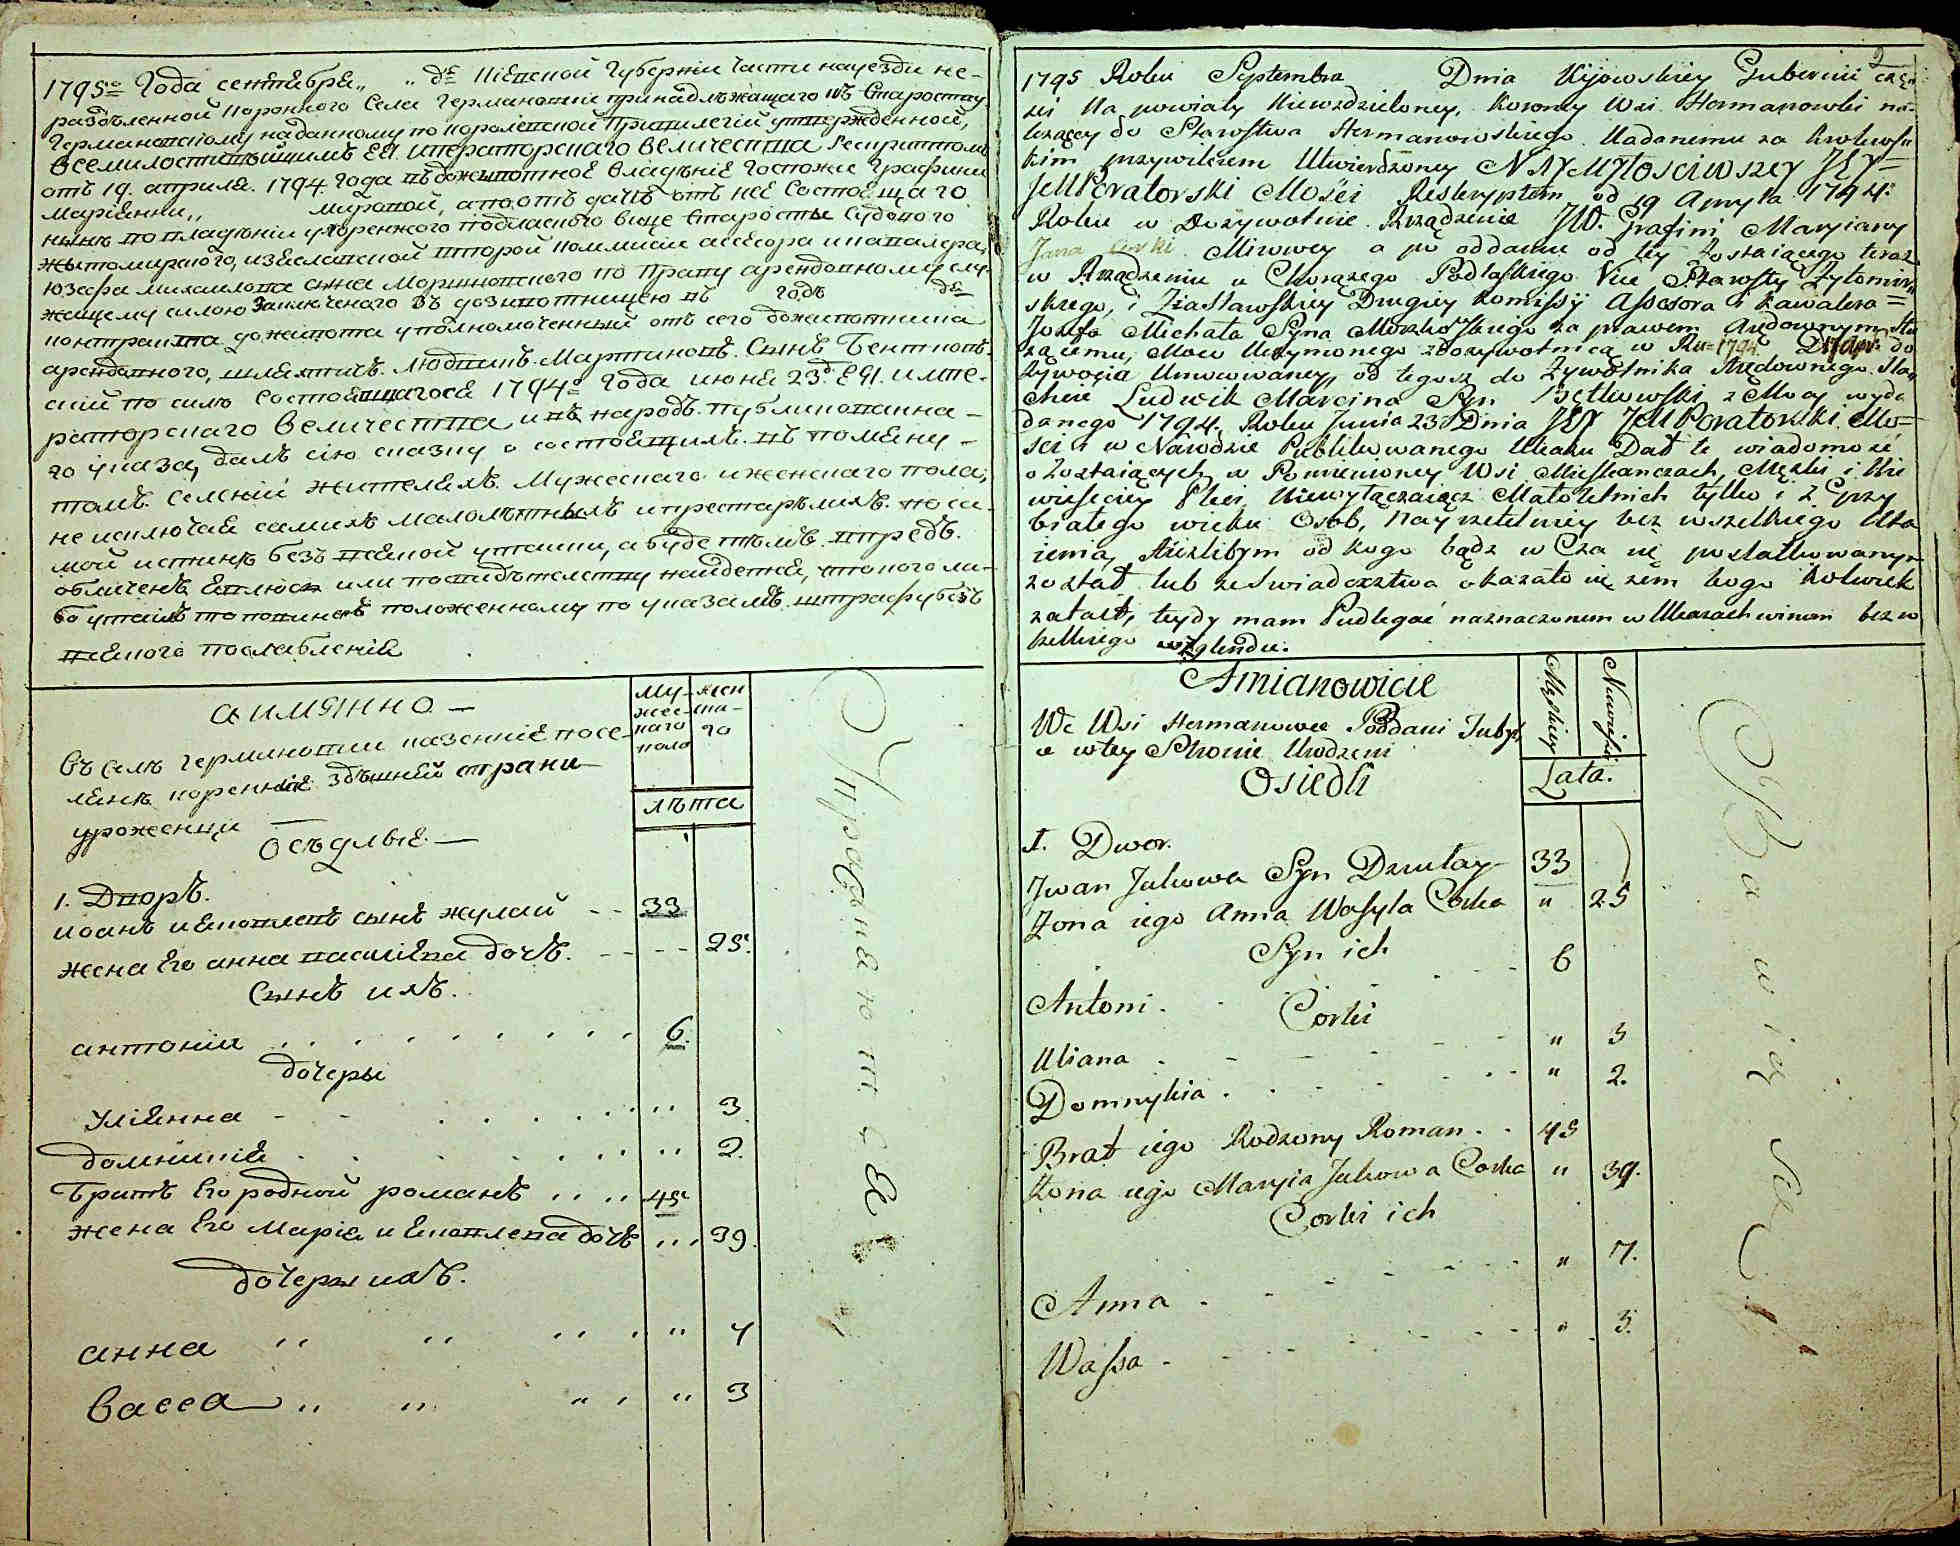 1795го Года сентебре,, ,, дс Кіевской Губерніи Части науезди не-
разделенной Коронного Села Германовки принадлѣжащаго къ Староству
Германовскому наданному по королевской Привилегіи утвержденной,
всемилостивѣйшимъ ЕЯ императторскаго величества Рескриптомъ
отъ 19. априля. 1794 года въ дожывотное владѣніе Госпожи Графини
маріянни,, мировой, а по отъ дачѣ отъ неё состоящаго
нынѣ по владѣнію у хоренжого подляского вице старосты Судового
жытомирского, изяславской второй коммисіи асесора и кавалера,
юзефа михаилова сына
контракта дожывота уполномоченный отъ сего дожывотника
арендовного, шляхтичъ. Людвикъ. Мартиновъ. Сынъ
скій по силѣ состоявшагося 1794го Года июня 23д. ЕЯ. импе-
раторскаго величества и въ народъ. публикованна-
го указа, далъ сію сказку о состоящихъ. въ помяну-
томъ. селеніи жителяхъ. Мужескаго и женскаго пола,
не исключая самихъ малолѣтныхъ и престарѣлихъ. по са-
мой истинѣ безъ всякой утайки, а буде кѣмъ. впредъ.
обличенъ явлюсь или по свидѣтелству найдется, что кого ли-
бо утаилъ то повиненъ положенному по указамъ. штрафу безъ
всякого послабленія
а имянно —
въ селѣ германовки казенніе посе-
ляне коренніе здѣшней страни
уроженци
осѣдлые. —
му-
жес-
каго
пола
жен
ска-
го
лѣта
1. Дворъ.
иоанъ иековлевъ сынъ жулай - - 33
жена его анна василіева дочъ. - - - - 25.
сынъ ихъ.
антоніи . . . . . . . 6.
дочеры
Уліянна - - . . . . . ,, 3
домникія . . . . . . ,, 2.
братъ его родной романъ . . . . 45
жена его Марія иековлева дочъ . . . 39.
дочеры ихъ.
анна ,, ,, ,, ,, 7
васса ,, ,, ,, ,, 3
2
1795 Roku Septembra Dnia Kijowskiey Gubernii części
na powiaty Niewzdzieloney, Koronney Wsi Hermanowki na-
lezącey do Starostwa Hermanowskiego Nadanemu za Krolews-
kim przywileiem Utwierdzoney NayMyłosciwszey Jey=
JeMPeratorski Mości Reskryptem od 19 Apryla 1794:
Roku w Dozywotnie Rządzenie JW. Grafini Maryiany
Mirowey a po oddaniu od tey Zostaiącego teraz
w Rządzeniu u Chorązego Podlaskiego Vice Starosty Zytomir-
skiego, i Ziasławskiey Drugiey Komissyi Assesora i Kawalera=
Jozefa Michała Syna za prawem Arędownym
Mocą Utrzymonego z Dozywotnicą w Ru=1794. do
Zywocia Umocowaney, od tegosz do Zywotnika Arędownego Sla-
chcic Ludwik Marcina Syn z Mocy wyda
danego 1794. Roku Junia 23 Dnia JEY JeMPoratorski Mo=
sci i w Narodzie Publikowanego Ukazu Dał te wiadomość
o Zostaiących w Pomienioney Wsi Mieszkanczach, Męzki i Nie
wiesciey Płci, niewyłączaiąc Małoletnich tylko i z grzy
białego wieku Osob, Nayrzetelniey bez wszelkiego Uta
ienia, Aiezlibym od kogo bądz w Cza się poslakowanym
został lub ze swiadectwa okazało się żem kogo kolwiek
zataił, tedy mam Podlegać naznaczonem w Ukazach winom bez w
szelkiego względu.
Amianowicie
We Wsi Hermanowce Poddani Tuby
w tey Stronie Urodzeni
Osiedli
Męskiey
Niewieści
Lata.
1. Dwor.
Jwan Jakowa Syn Dzułay 33
Zona iego Anna Wasyla Corka " 25
Syn ich
Antoni . . . . . 6
Corki
Uliana . - - - . " 3
Domnykia . . - . . " 2.
Brat iego Rodzony Roman . . 45
Zona iego Maryia Jakowa Corka " 39.
Corki ich
Anna . - - - . " 7.
Wassa - . - . . " 3.